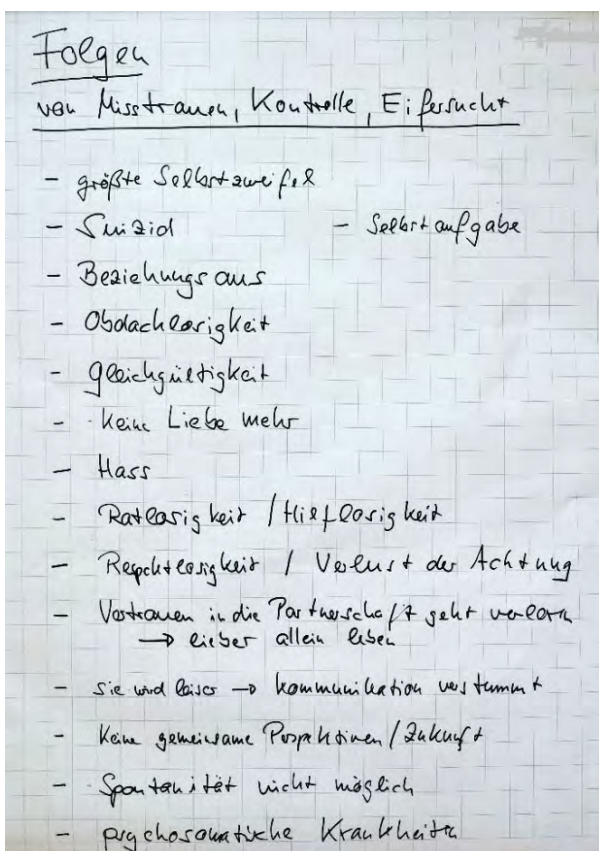 Folgen
von Misstrauen, Kontrolle, Eifersucht
- größte Selbstzweifel
- Suizid - Selbstaufgabe
- Beziehungsaus
- Obdachlosigkeit
- Gleichgültigkeit
- Keine Liebe mehr
- Hass
- Ratlosigkeit / Hilflosigkeit
- Respektlosigkeit / Verlust der Achtung
- Vertrauen in die Partnerschaft geht verloren
→ lieber allein leben
- sie wird leiser → Kommunikation verstummt
- Keine gemeinsame Perspektiven / Zukunft
- Spontanität nicht möglich
- psychosomatische Krankheiten